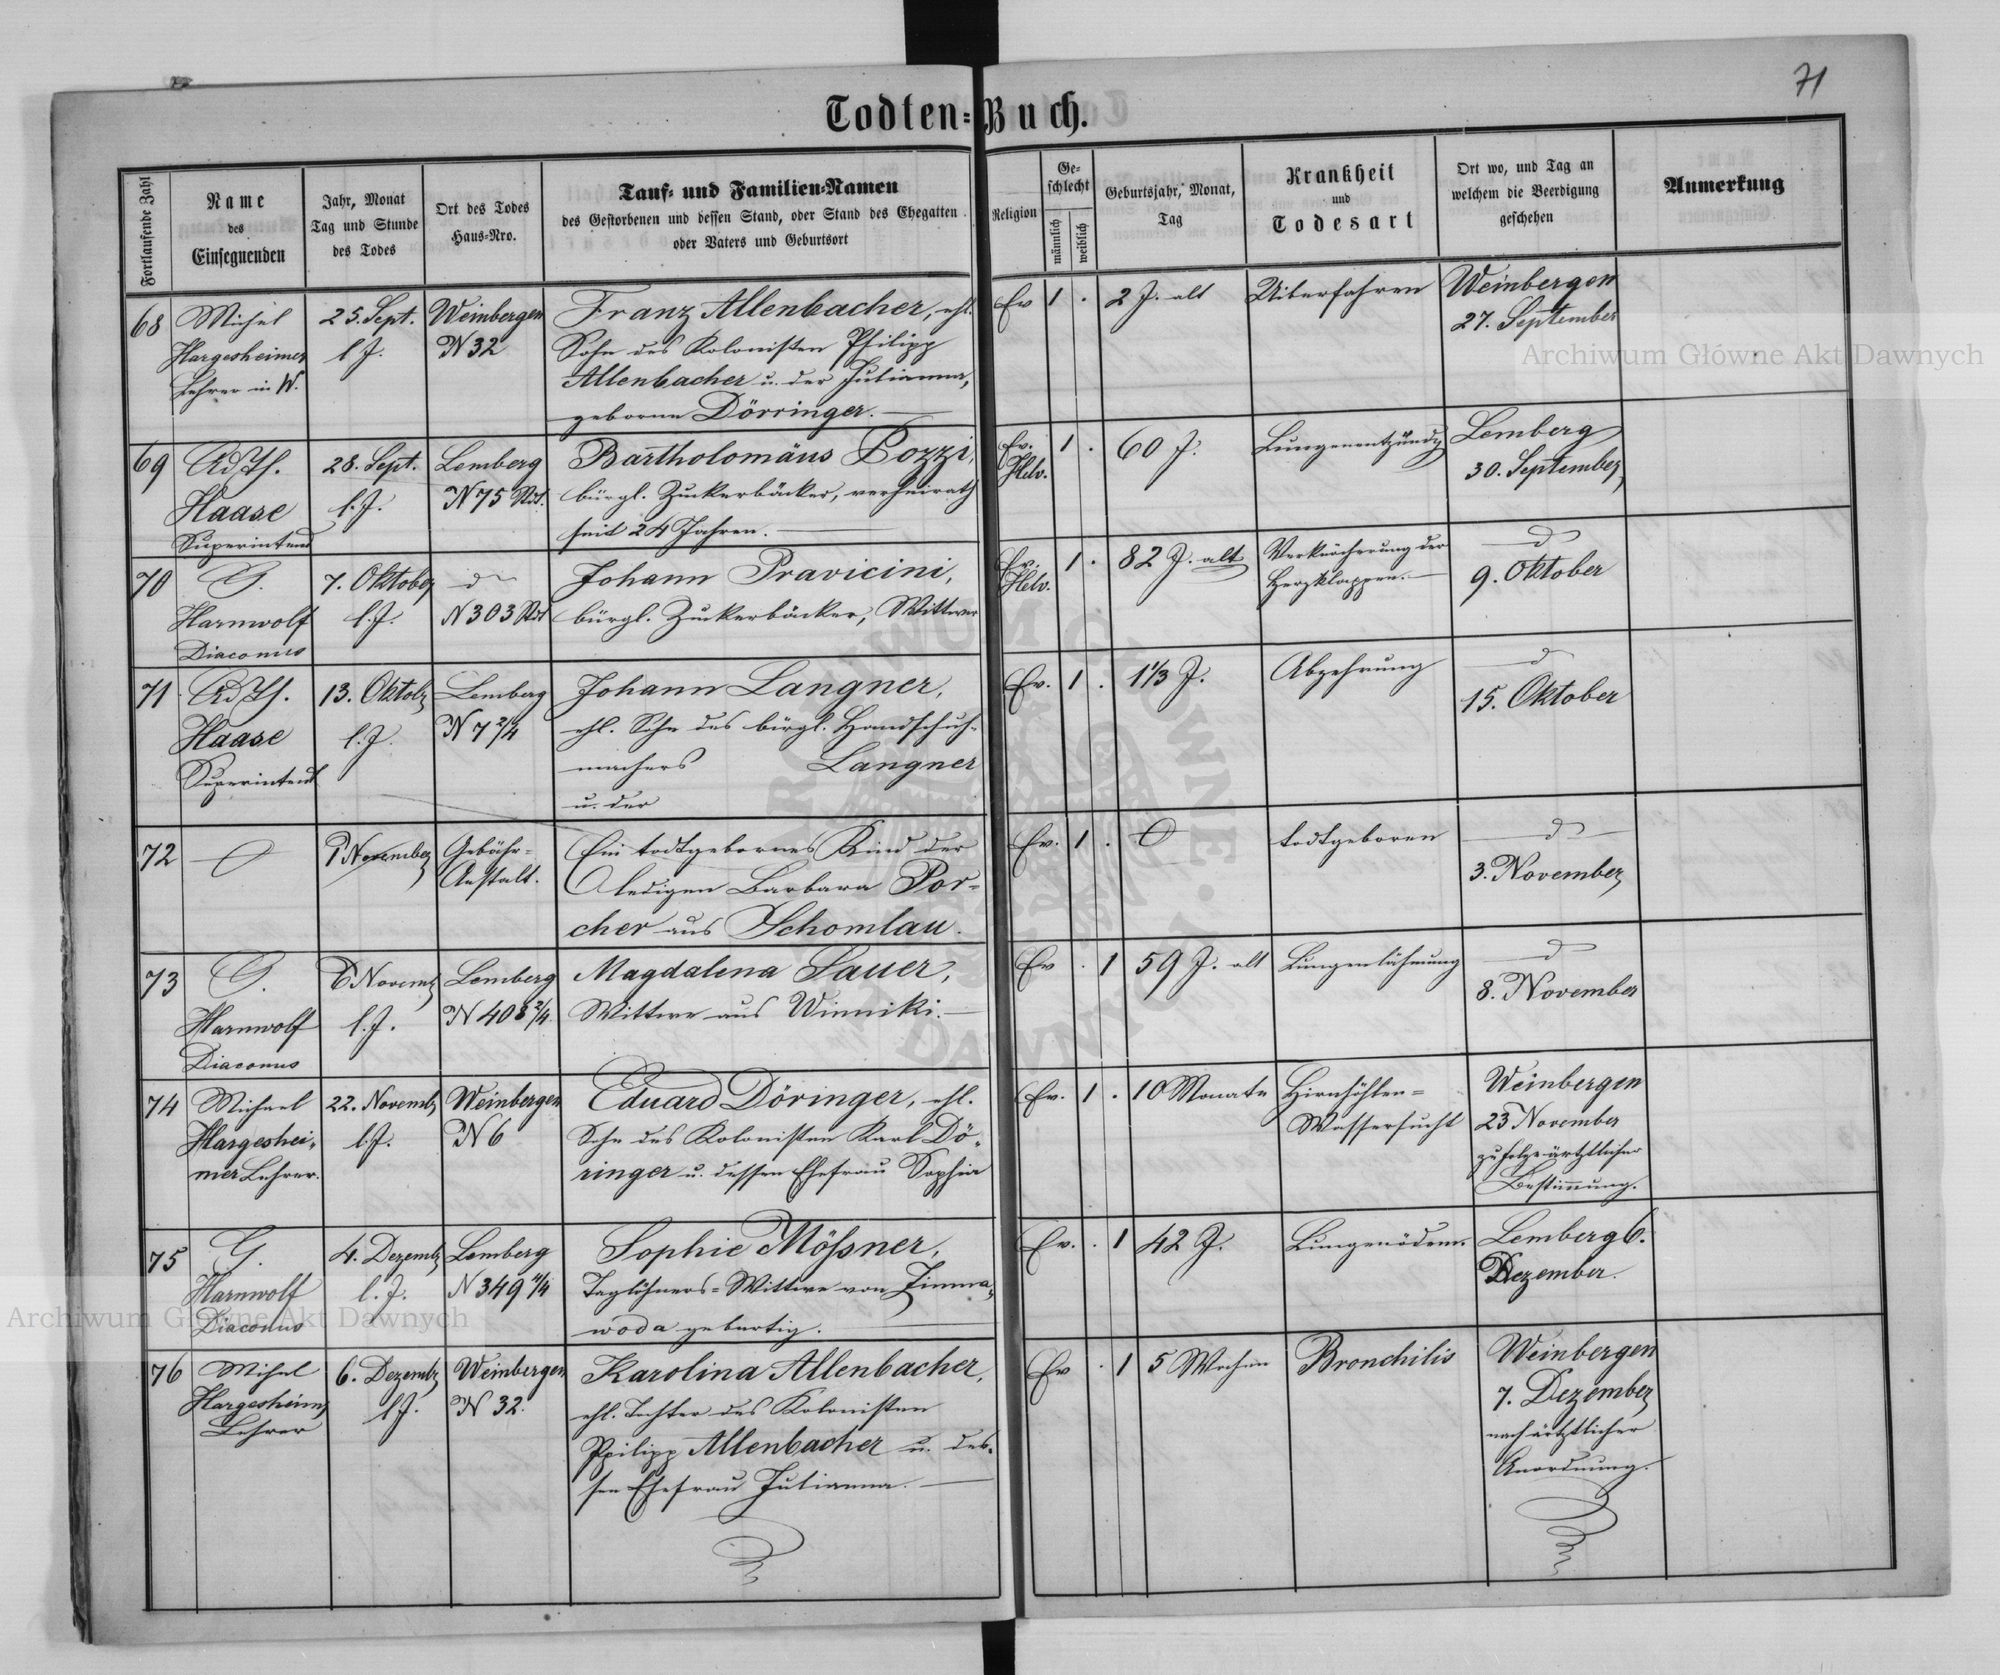 71
Todten-Buch.
Fortlaufende Zahl
Name
des
Einsegnenden
Jahr, Monat
Tag und Stunde
des Todes
Ort des Todes
Haus-Nro.
Tauf- und Familien-Namen
des Gestorbenen und dessen Stand, oder Stand des Ehegatten
oder Vaters und Geburtsort
Religion
Ge-
schlecht
männlich
weiblich
Geburtsjahr, Monat,
Tag
Krankheit
und
Todesart
Ort wo, und Tag an
welchem die Beerdigung
geschehen
Anmerkung
68
Michel
Hargesheimer
Lehrer in W.
25. Sept.
l. J.
Weinbergen
N 32
Franz Allenbacher, ehl.
Sohn des Kolonisten Philipp
Allenbacher u. der Julianna,
geborne Dörringer.
Ev
1 .
2 J. alt
Uiberfahren
Weinbergen
27. September
69
Ad. Th.
Haase
Superintend
28. Sept.
l. J.
Lemberg
N 75 Std.
Bartholomäus Pozzi,
bürgl. Zuckerbäcker, verheirath
seit 24 Jahren.
Ev.
Helv.
1 .
60 J.
Lungenentzündg
Lemberg
30. September
70
G.
Harnwolf
Diaconus
7. Oktober
l. J.
do
N 303 Std
Johann Pravicini,
bürgl. Zuckerbäcker, Wittwer
Ev.
Helv.
1 .
82 J. alt
Verknöcherung der
Herzklappen.
do
9. Oktober
71
Ad. Th.
Haase
Superintend
13. Oktob
l. J.
Lemberg
N 7 2/4
Johann Langner,
ehl. Sohn des bürgl. Handschuh-
machers Langner
u. der
Ev.
1 .
1 1/3 J.
Abzehrung
do
15. Oktober
72
1 November
Gebähr-
Anstalt.
Ein todtgebornes Kind der
ledigen Barbara Por-
cher aus Schomlau.
Ev.
1 .
todtgeboren
do
3. November
73
G.
Harnwolf
Diaconus
6 Novemb
l. J.
Lemberg
N 408 2/4
Magdalena Sauer,
Wittwe aus Winniki.
Ev
. 1
59 J. alt
Lungenlähmung
do
8. November
74
Michael
Hargeshei-
mer Lehrer.
22. Novemb
l. J.
Weinbergen
N 6
Eduard Döringer, ehl.
Sohn des Kolonisten Karl Dö-
ringer u. dessen Ehefrau Sophia
Ev.
1 .
10 Monate
Hirnhöhlen-
Wassersucht
Weinbergen
23 November
zufolge ärztlicher
Bestimmung.
75
G.
Harnwolf
Diaconus
4. Dezemb
l. J.
Lemberg
N 349 4/4
Sophie Mößner,
Taglöhners-Wittwe von Zimna-
woda gebürtig.
Ev.
. 1
42 J.
Lungenödem.
Lemberg 6.
Dezember.
76
Michel
Hargesheim
Lehrer
6. Dezemb
l. J.
Weinbergen
N 32.
Karolina Allenbacher,
ehl. Tochter des Kolonisten
Philipp Allenbacher u. des-
sen Ehefrau Julianna.
Ev
. 1
5 Wochen
Bronchilis
Weinbergen
7. Dezember
nach ärztlicher
Anordnung.
Archiwum Główne Akt Dawnych
Archiwum Główne Akt Dawnych
ARCHIWUM GŁÓWNE AKT DAWNYCH